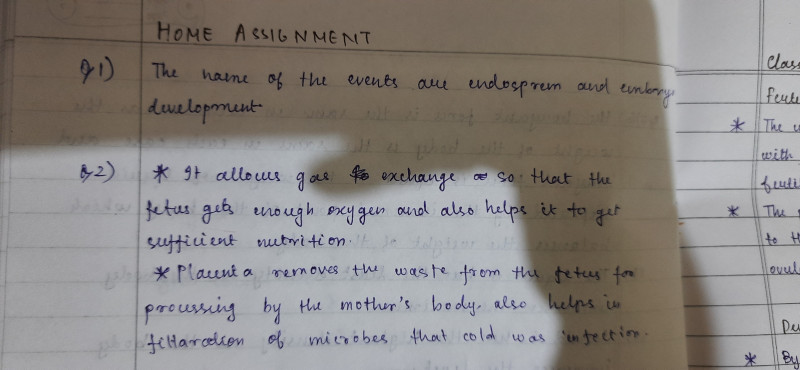 HOME ASSIGNMENT
Q1) The name of the events are endosprem and embryo
development
Q2) * It allows gas exchange so that the
fetus gets enough oxygen and also helps it to get
sufficient nutrition.
* Placenta removes the waste from the fetus for
processing by the mother's body. also helps in
of microbes that cold was infection.
Class
* The
with
* The
to
By